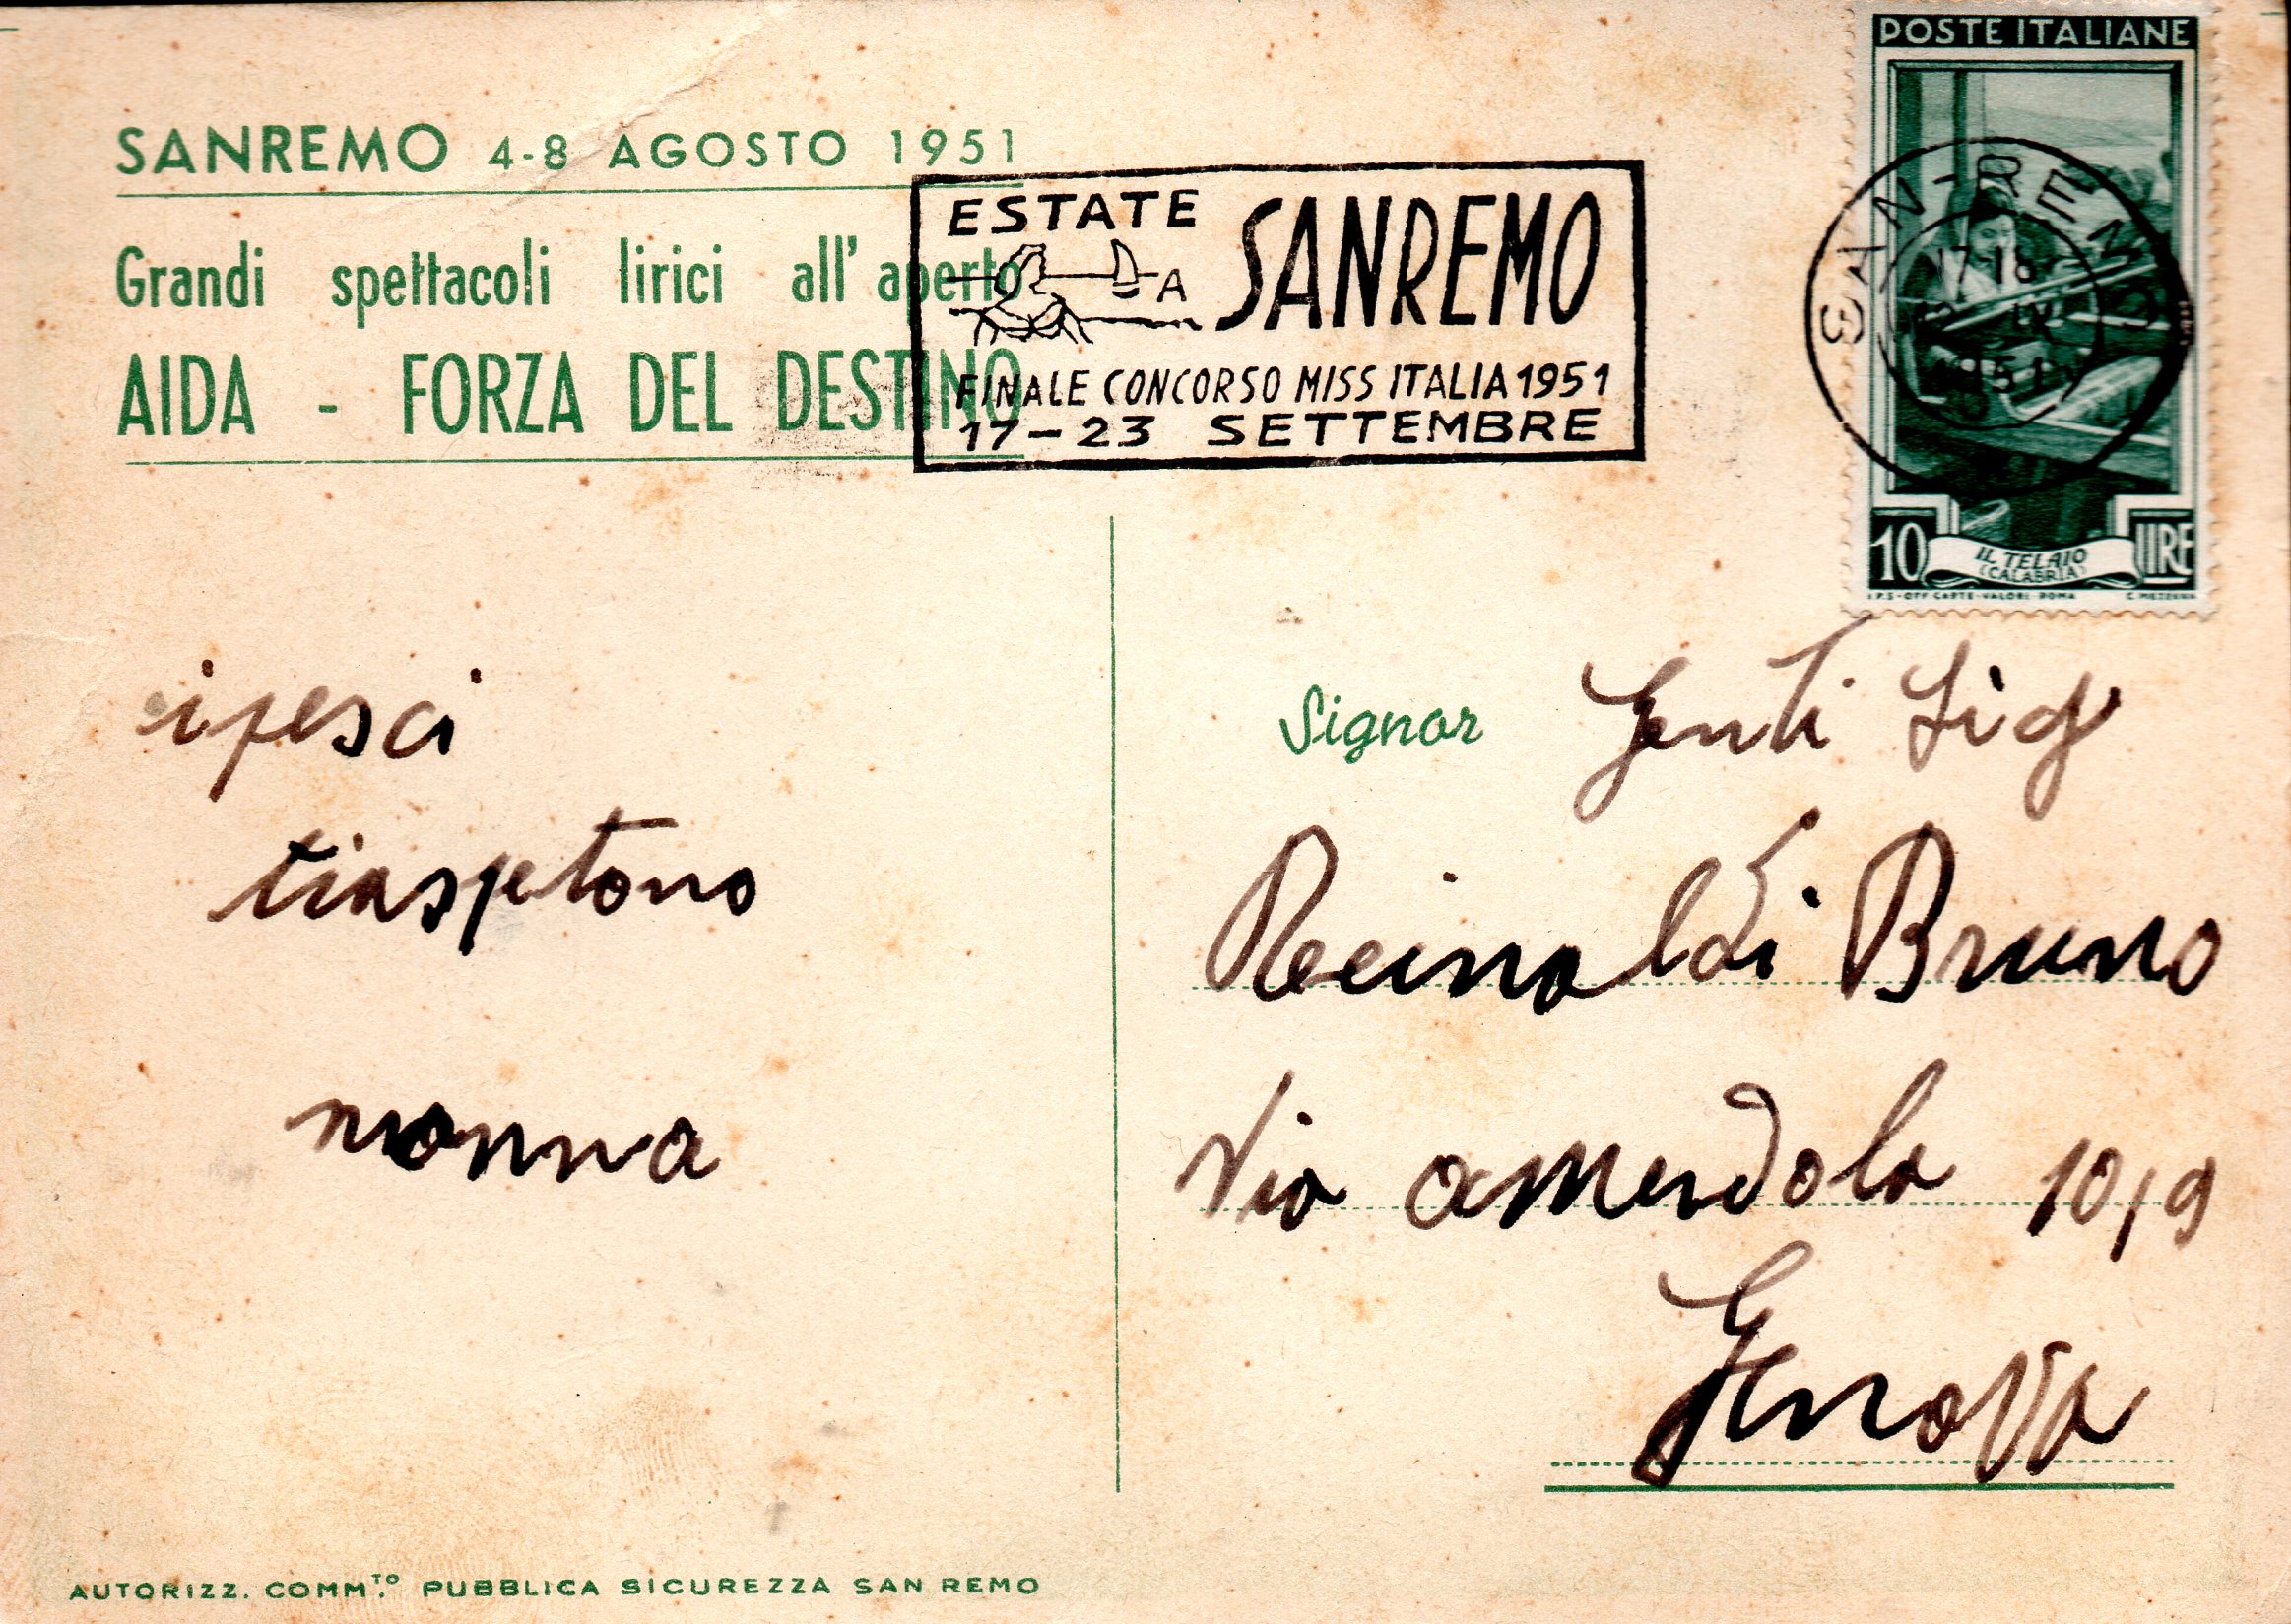 SANREMO 4-8 AGOSTO 1951
Grandi spettacoli lirici all'aperto
AIDA - FORZA DEL DESTINO
ESTATE
A
SANREMO
FINALE CONCORSO MISS ITALIA 1951
17-23 SETTEMBRE
POSTE ITALIANE
SAN-REMO
17-18
IX
1951
10 LIRE
IL TELAIO
(CALABRIA)
I.P.S-OFF CARTE-VALORI-ROMA C. MEZZANA
i pesci
tiaspetono
nonna
Signor Genti Sig
Reinaldi Bruno
Via amendola 10/9
Genova
AUTORIZZ. COMM.TO PUBBLICA SICUREZZA SAN REMO